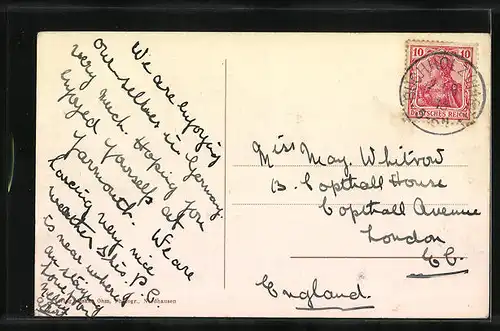 We are enjoying
our selves in Germany
very much. Hoping you
enjoyed yourself at
Yarmouth. We are
having very nice
weather this P.C.
is near where
we are staying
love from
Ohm, Nordhausen
10 10
DEUTSCHES REICH
Miss May. Whitrow
13. Copthall House
Copthall Avenue
London
E.C.
England